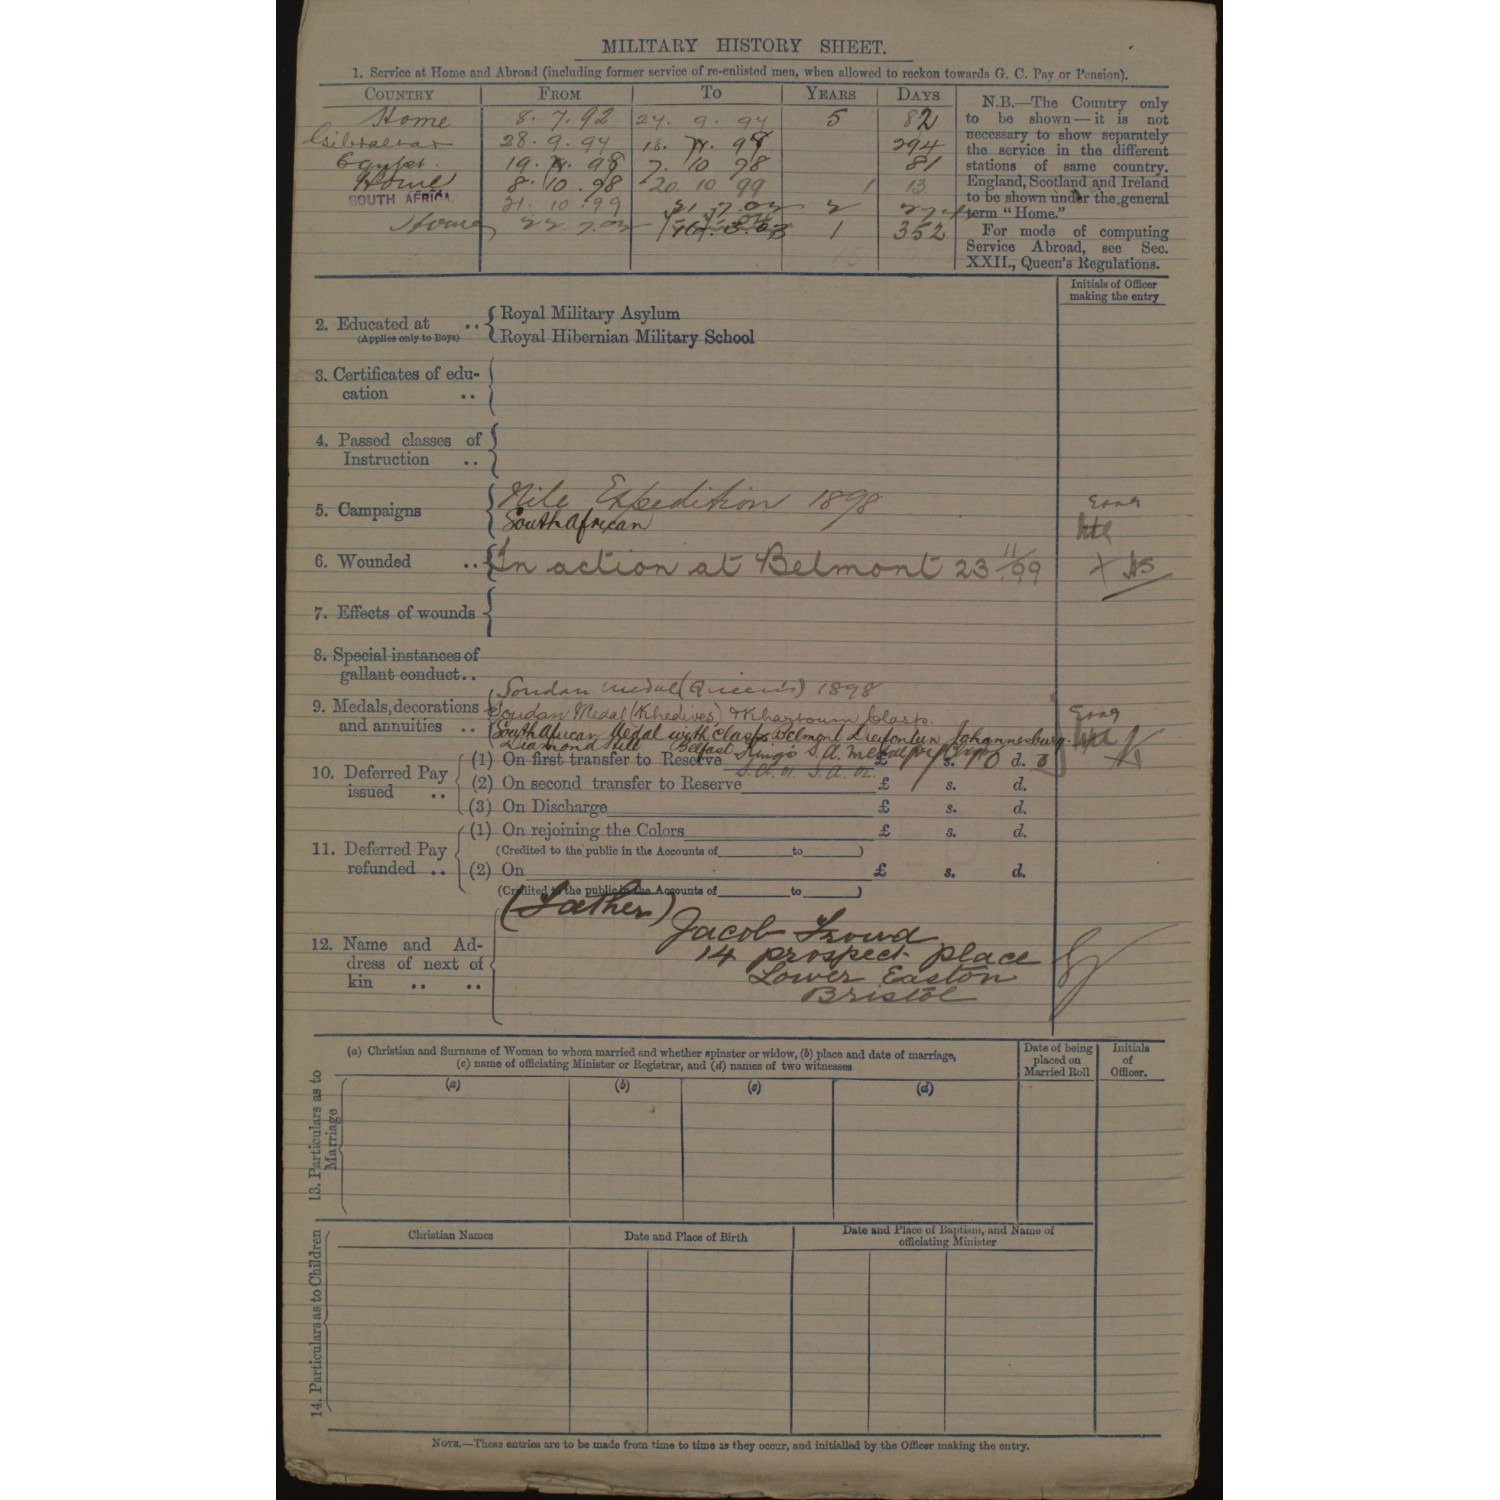 MILITARY HISTORY SHEET.
1. Service at Home and Abroad (including former service of re-enlisted men, when allowed to reckon towards G. C. Pay or Pension).
COUNTRY FROM TO YEARS DAYS
Home 8. 7. 92 27. 9. 97 5 82
Gibraltar 28. 9. 97 18. 7. 98 294
Egypt. 19. 7. 98 7. 10 98 81
Home 8. 10. 98 20. 10 99 1 13
SOUTH AFRICA. 21. 10. 99 21. 7. 02 2 274
Home 22. 7. 02 1 352
N.B.—The Country only
to be shown—it is not
necessary to show separately
the service in the different
stations of same country.
England, Scotland and Ireland
to be shown under the general
term "Home."
For mode of computing
Service Abroad, see Sec.
XXII., Queen's Regulations.
Initials of Officer
making the entry
2. Educated at .. Royal Military Asylum
(Applies only to Boys) Royal Hibernian Military School
3. Certificates of edu-
cation ..
4. Passed classes of
Instruction ..
5. Campaigns Nile Expedition 1898
South African
6. Wounded .. In action at Belmont 23 11/99
7. Effects of wounds
8. Special instances of
gallant conduct..
Soudan medal (Queen's) 1898
9. Medals, decorations Soudan Medal (Khedives) & Khartoum Clasp.
and annuities .. South African Medal with clasps Belmont Driefontein Johannesburg.
Diamond Hill Belfast King's S.A. Medal
S.A. 01. S.A. 02.
10. Deferred Pay issued ..
(1) On first transfer to Reserve £ s. d.
(2) On second transfer to Reserve £ s. d.
(3) On Discharge £ s. d.
11. Deferred Pay refunded ..
(1) On rejoining the Colors £ s. d.
(Credited to the public in the Accounts of to )
(2) On £ s. d.
(Credited to the public in the Accounts of to )
12. Name and Ad-
dress of next of
kin .. ..
(Father)
Jacob Frowd
14 prospect place
Lower Easton
Bristol
13. Particulars as to Marriage
(a) Christian and Surname of Woman to whom married and whether spinster or widow, (b) place and date of marriage,
(c) name of officiating Minister or Registrar, and (d) names of two witnesses
Date of being
placed on
Married Roll
Initials
of
Officer.
(a) (b) (c) (d)
14. Particulars as to Children
Christian Names Date and Place of Birth Date and Place of Baptism, and Name of
officiating Minister
NOTE.—These entries are to be made from time to time as they occur, and initialled by the Officer making the entry.